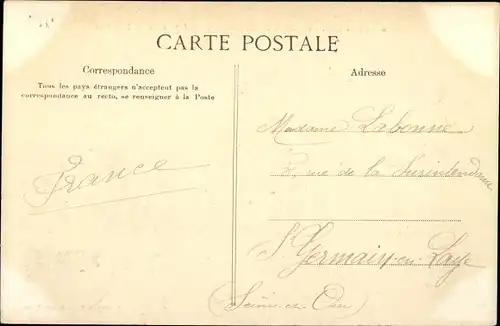 CARTE POSTALE
Correspondance
Tous les pays étrangers n'acceptent pas la
correspondance au recto, se renseigner à la Poste
France
Adresse
Madame Labonne
rue de la Surintendance
St Germain-en-Laye
(Seine et Oise)